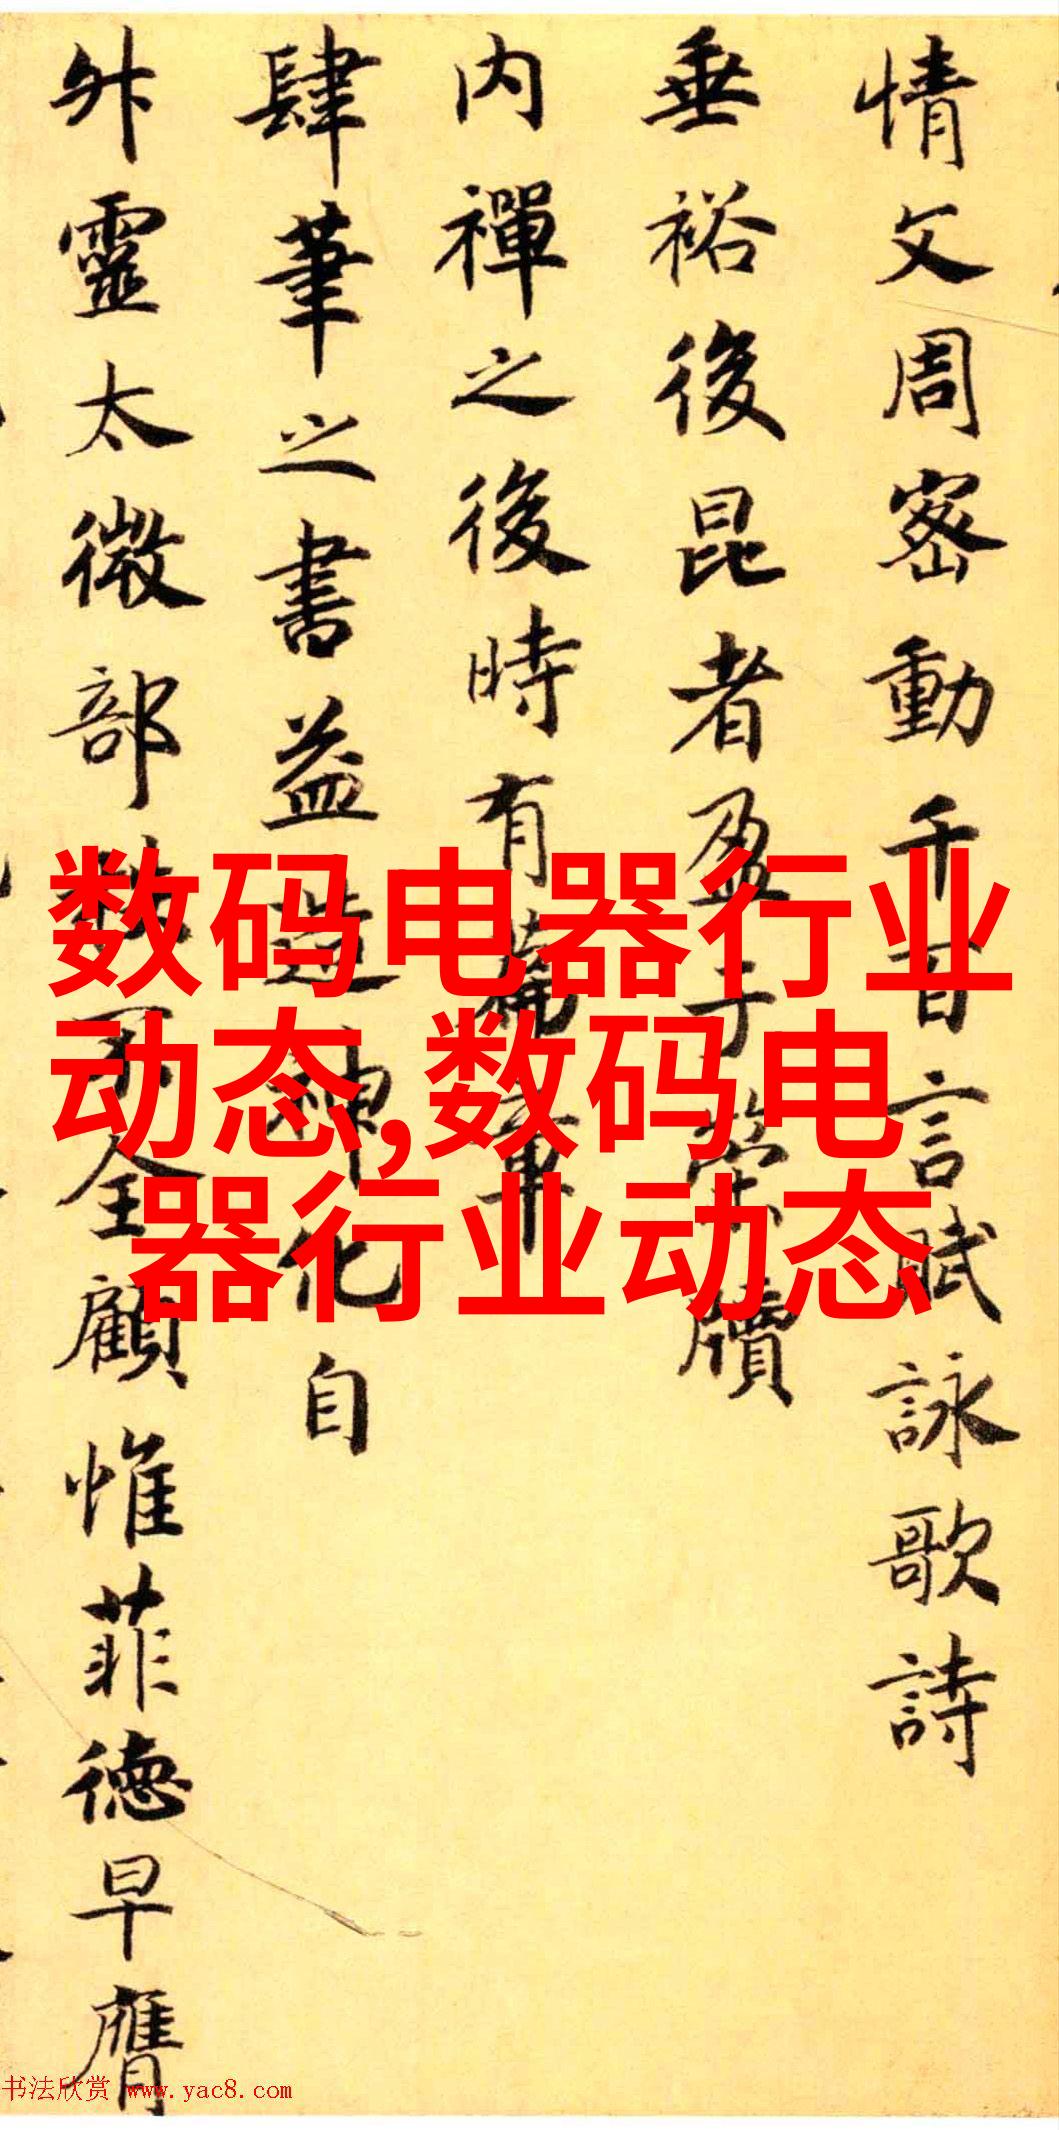 情文周密動千百言賦詠歌詩
垂裕後昆者盈乎牘
内禪之後時有篇章
肆筆之書益造神化自
靈太微部不全顧惟菲德早膺
数码电器行业
动态,数码电
器行业动态
书法欣赏 www.yac8.com